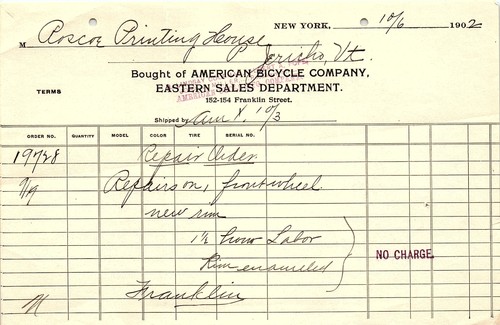 NEW YORK, 10/6 1902
M Roscoe Printing House
Jericho, Vt.
Bought of AMERICAN BICYCLE COMPANY,
TERMS EASTERN SALES DEPARTMENT.
152-154 Franklin Street.
Shipped by Am X. 10/3
ORDER NO. QUANTITY MODEL COLOR TIRE SERIAL NO.
19728 Repair Order
9/19 Repairs on, front wheel
new rim
1½ hour Labor
Rim enameled
NO CHARGE.
Franklin